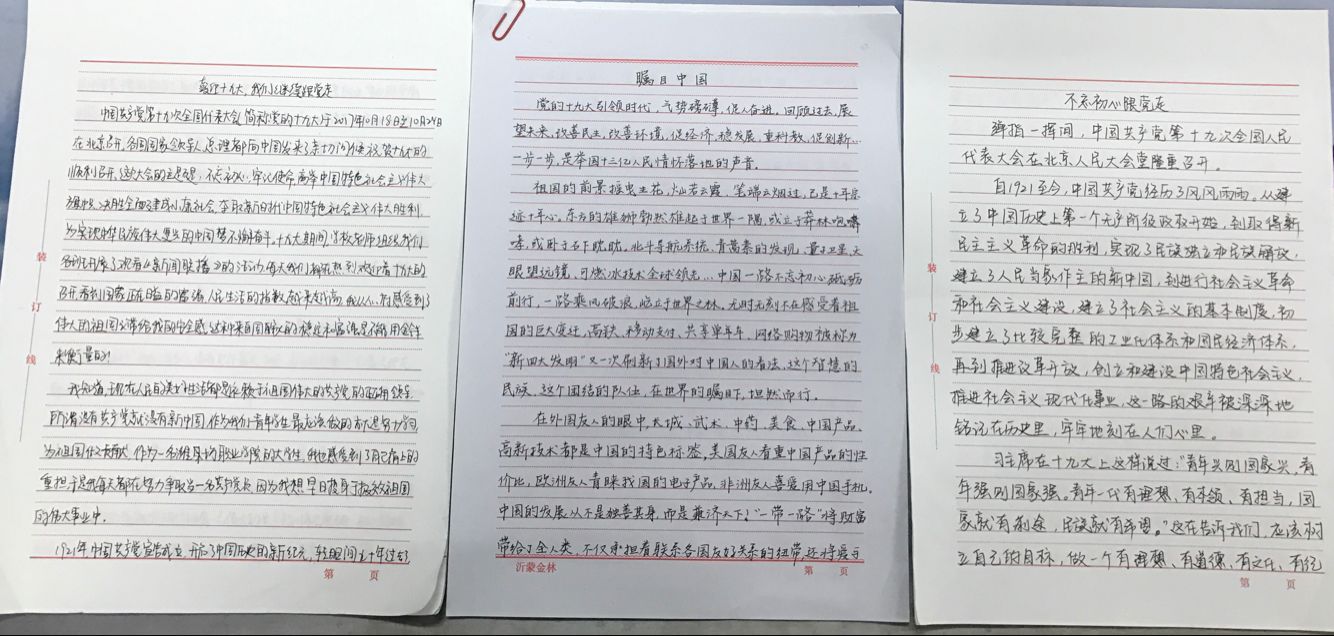 喜迎十九大，我们继续跟党走
中国共产党第十九次全国代表大会（简称党的十九大）于2017年10月18日至10月24日
在北京召开，各国国家领导人、总理都向中国发来了亲切问候祝贺十九大的
顺利召开。这次大会的主题是：不忘初心，牢记使命，高举中国特色社会主义伟大
旗帜，决胜全面建成小康社会，夺取新时代中国特色社会主义伟大胜利，
为实现中华民族伟大复兴的中国梦不懈奋斗。十九大期间，学校老师组织我们
各班开展了观看《新闻联播》的活动，每天我们
召开看到国家正在日益的富强，人民生活的指数越来越高，我从心
伟大的祖国
来衡量的！
我知道，现在人民的美好生活都是依赖于祖国伟大的共产党的正确领导，
所谓没有共产党就没有新中国，作为我们青年学生最应该做的就是努力学习，
为祖国作贡献，作为一名潍坊职业学院的大学生，我也感受到了肩上的
重担，于是我每天都在努力争取当一名共产党员，因为我想早日投身于报效祖国
的伟大事业中。
1921年中国共产党宣告成立，开启了中国历史的新纪元，转眼间九十年过去了，
装
订
线
第 页
瞩目中国
党的十九大引领时代，气势磅礴，促人奋进。回顾过去，展
望未来，改善民生，改善环境，促经济，稳发展，重科教，促创新…
一步一步，是举国十三亿人民情怀落地的声音。
祖国的前景摇曳生花，灿若云霞，笔端云烟过，已是十年
东方的雄狮勃然雄起于世界一隅，或立于莽林咆哮
嚎，或卧于石下眈眈。北斗导航系统、青蒿素的发现、量子卫星、天
眼望远镜、可燃冰技术全球领先…中国一路不忘初心砥砺
前行，一路乘风破浪，屹立于世界之林。无时无刻不在感受着祖
国的巨大变迁，高铁、移动支付、共享单车、网络购物被称为
“新四大发明”又一次刷新了国外对中国人的看法，这个智慧的
民族，这个团结的队伍，在世界的瞩目下，坦然而行。
在外国友人的眼中，长城、武术、中药、美食、中国产品、
高新技术都是中国的特色标签，美国友人看重中国产品的性
价比，欧洲友人青睐我国的电子产品，非洲友人喜爱用中国手机。
中国的发展从不是独善其身，而是兼济天下！“一带一路”将财富
带给了全人类，不仅承担着联系各国友好关系的纽带，还将爱与
沂蒙金林
第 页
不忘初心跟党走
弹指一挥间，中国共产党第十九次全国人民
代表大会在北京人民大会堂隆重召开。
自1921至今，中国共产党经历了风风雨雨。从建
立了中国历史上第一个无产阶级政权开始，到取得新
民主主义革命的胜利，实现了民族独立和民族解放，
建立了人民当家作主的新中国，到进行社会主义革命
和社会主义建设，建立了社会主义的基本制度，初
步建立了比较完整的工业化体系和国民经济体系，
再到推进改革开放，创立和建设中国特色社会主义，
推进社会主义现代化事业，这一路的艰辛被深深地
铭记在历史里，牢牢地刻在人们心里。
习主席在十九大上这样说过：“青年兴则国家兴，青
年强则国家强。青年一代有理想、有本领、有担当，国
家就有前途，民族就有希望。”这在告诉我们，应该树
立自己的目标，做一个有理想、有道德、有文化、有纪
装
订
线
第 页